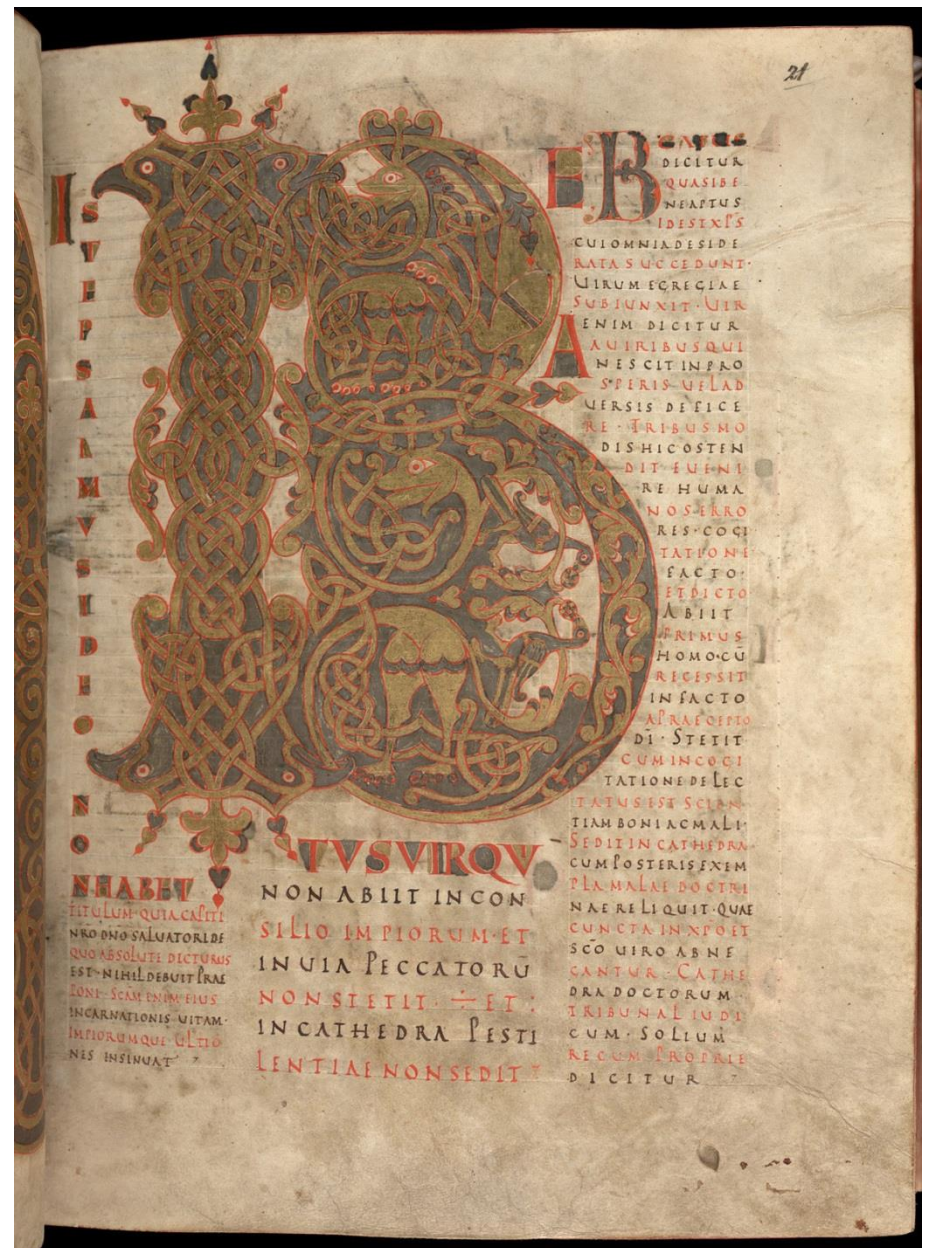 21
ISTEPSALMVSIDEO NO
NHABET
TITULUM QUIA CAPITI
NRO DNO SALUATORI DE
QUO ABSOLUTE DICTURUS
EST NIHIL DEBUIT PRAE
PONI · SCAM ENIM EIUS
INCARNATIONIS UITAM·
IMPIORUMQUE ULTIO
NIS INSINUAT
B
E
A
TVS VIR QV
NON ABIIT IN CON
SILIO IMPIORUM· ET
IN UIA PECCATORŪ
NON STETIT · ÷ ET :
IN CATHEDRA PESTI
LENTIAE NON SEDIT
BEATUS
DICITUR
QUASI BE
NE APTUS
ID EST XPS
CUI OMNIA DESIDE
RATA SUCCEDUNT·
UIRUM EGREGIAE
SUBIUNXIT · UIR
ENIM DICITUR
A UIRIBUS QUI
NESCIT IN PRO
SPERIS UEL AD
UERSIS DEFICE
RE · TRIBUS MO
DIS HIC OSTEN
DIT EUENI
RE HUMA
NOS ERRO
RES · COGI
TATIONE
FACTO·
ET DICTO
ABIIT
PRIMUS
HOMO CŪ
RECESSIT
IN FACTO
A PRAECEPTO
DĪ · STETIT
CUM IN COGI
TATIONE DELEC
TATUS EST SCIEN
TIAM BONI AC MALI·
SEDIT IN CATHEDRA
CUM POSTERIS EXEM
PLA MALAE DOCTRI
NAE RELIQUIT · QUAE
CUNCTA IN XPO ET
SCO UIRO ABNE
GANTUR · CATHE
DRA DOCTORUM·
TRIBUNAL IUDI
CUM · SOLIUM
REGUM PROPRIE
DICITUR